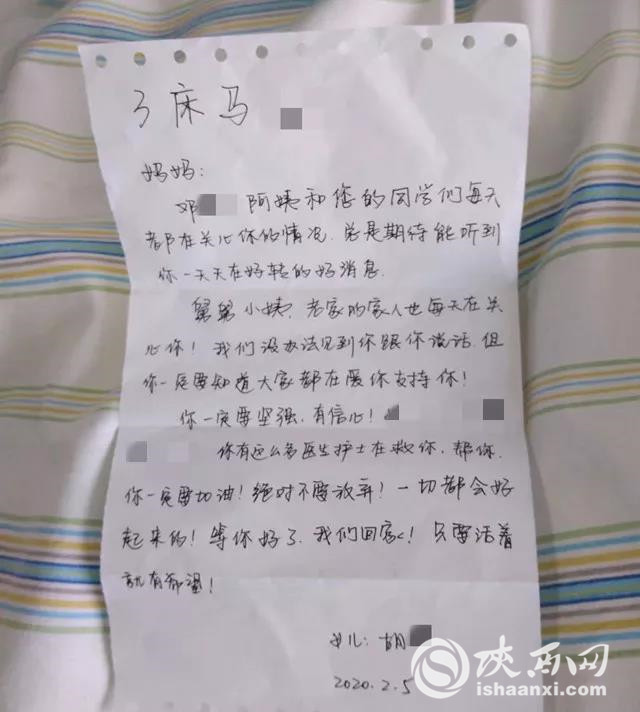 3床马
妈妈:
邓 阿姨和您的同学们每天
都在关心你的情况.总是期待能听到
你一天天在好转的好消息.
舅舅小姨.老家的家人也每天在关
心你!我们没办法见到你跟你说话.但
你一定要知道大家都在爱你支持你!
你一定要坚强.有信心!
你有这么多医生护士在救你.帮你.
你一定要加油!绝对不要放弃!一切都会好
起来的!等你好了.我们回家!只要活着
就有希望!
女儿:胡
2020.2.5
陕西网
ishaanxi.com